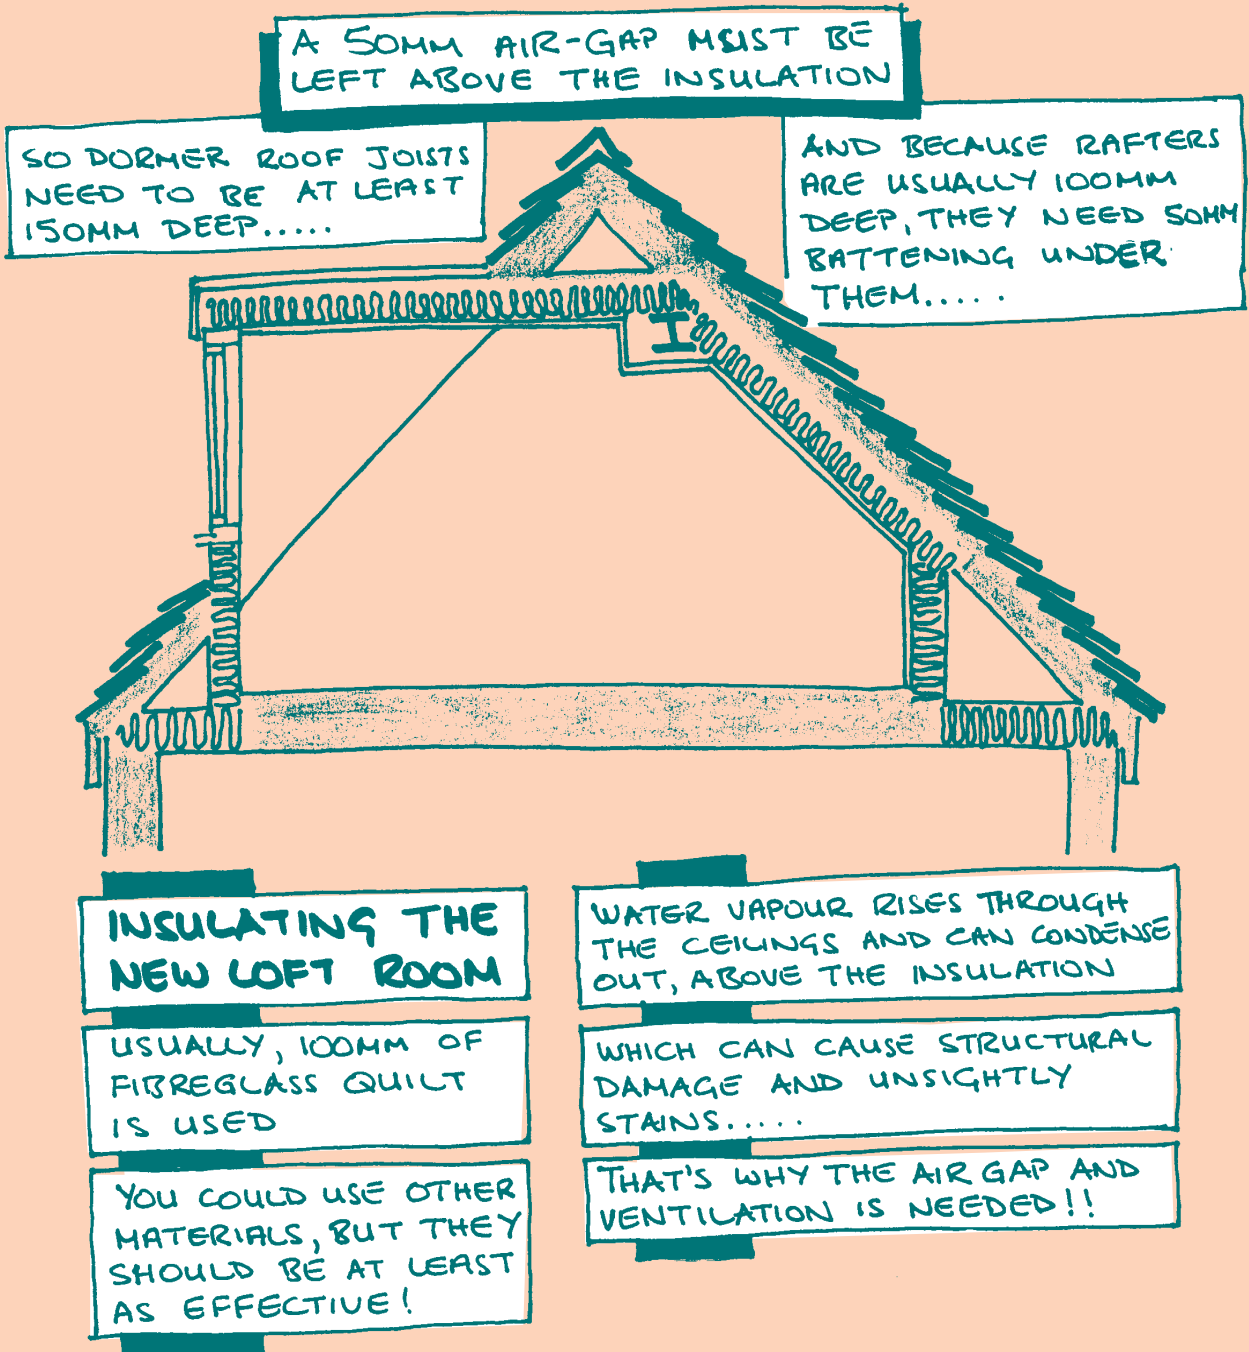 A 50MM AIR-GAP MUST BE
LEFT ABOVE THE INSULATION
SO DORMER ROOF JOISTS
NEED TO BE AT LEAST
150MM DEEP.....
AND BECAUSE RAFTERS
ARE USUALLY 100MM
DEEP, THEY NEED 50MM
BATTENING UNDER
THEM.....
INSULATING THE
NEW LOFT ROOM
USUALLY, 100MM OF
FIBREGLASS QUILT
IS USED
YOU COULD USE OTHER
MATERIALS, BUT THEY
SHOULD BE AT LEAST
AS EFFECTIVE!
WATER VAPOUR RISES THROUGH
THE CEILINGS AND CAN CONDENSE
OUT, ABOVE THE INSULATION
WHICH CAN CAUSE STRUCTURAL
DAMAGE AND UNSIGHTLY
STAINS.....
THAT'S WHY THE AIR GAP AND
VENTILATION IS NEEDED!!